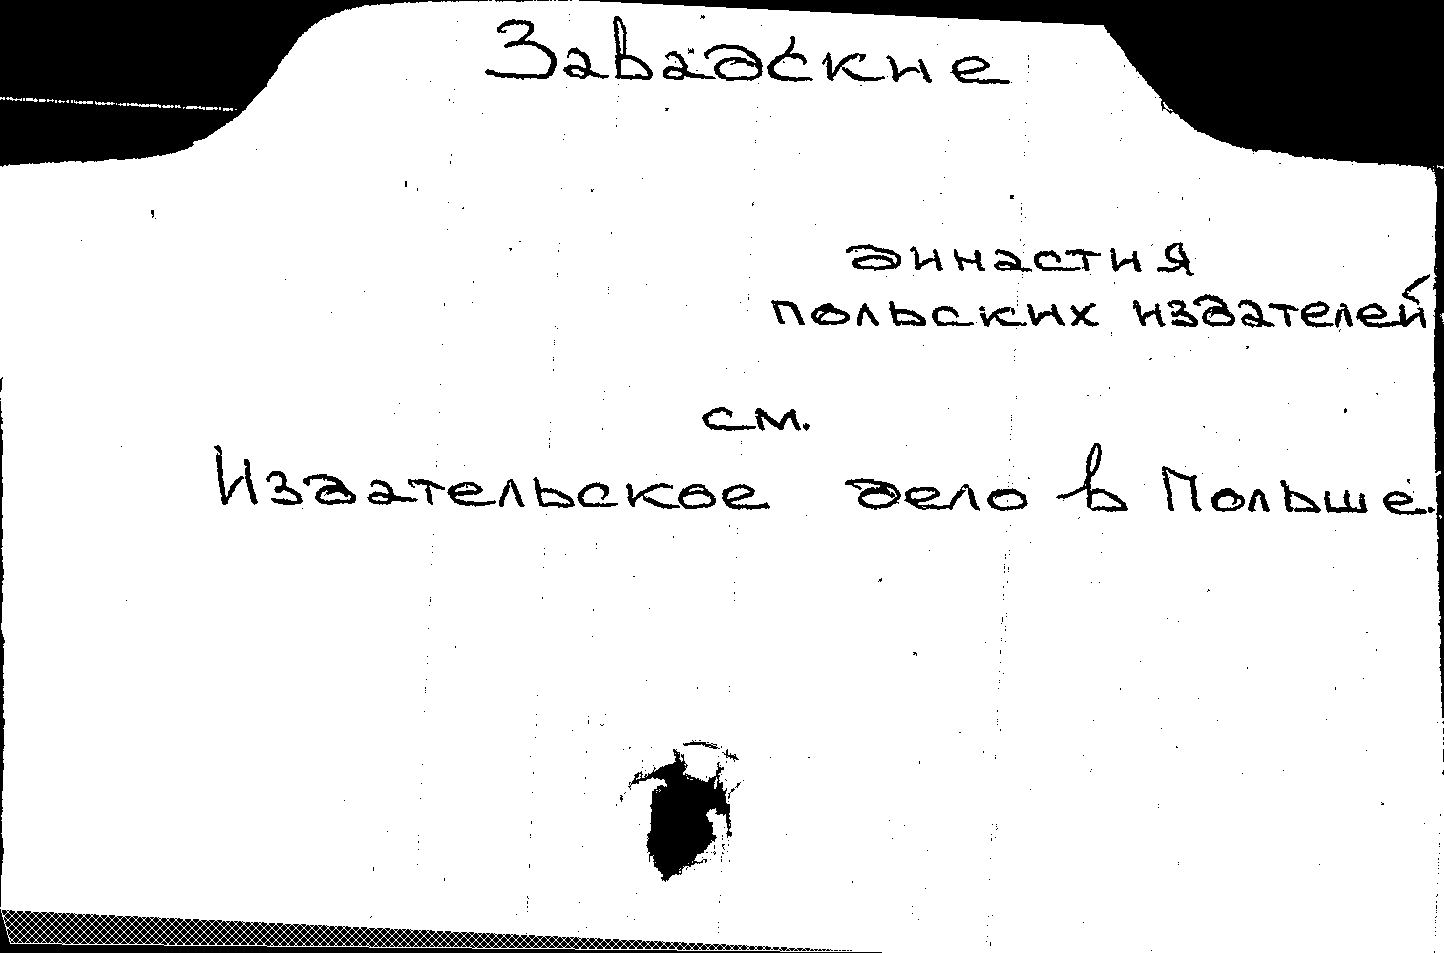 Завадские
династия
польских издателей
см.
Издательское дело в Польше.